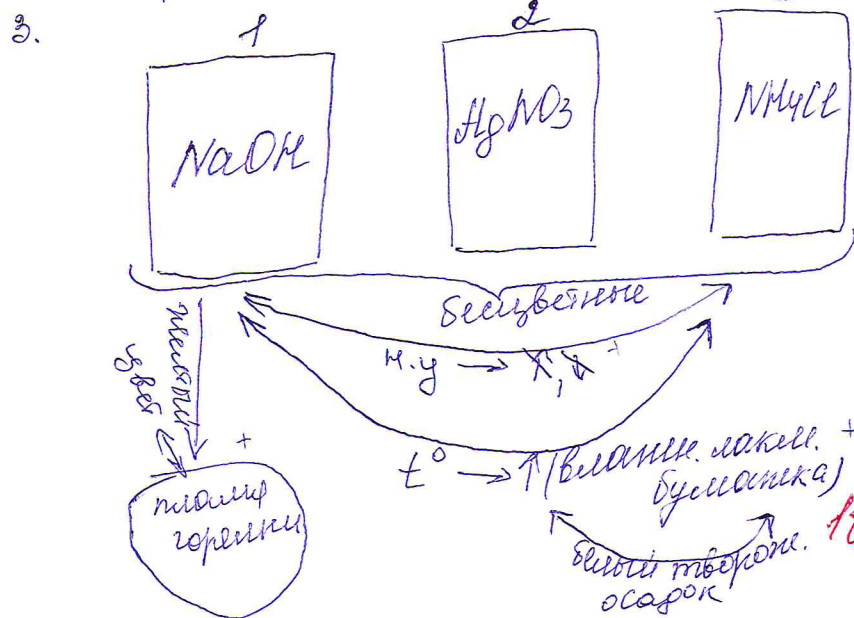 3.
1 2
NaOH AgNO3 NH4Cl
бесцветные
желтый
цвет
н.у → X, ↓ +
t° → ↑ (влажн. лакм. +
бумажка)
+
пламя
горелки
белый творож.
осадок